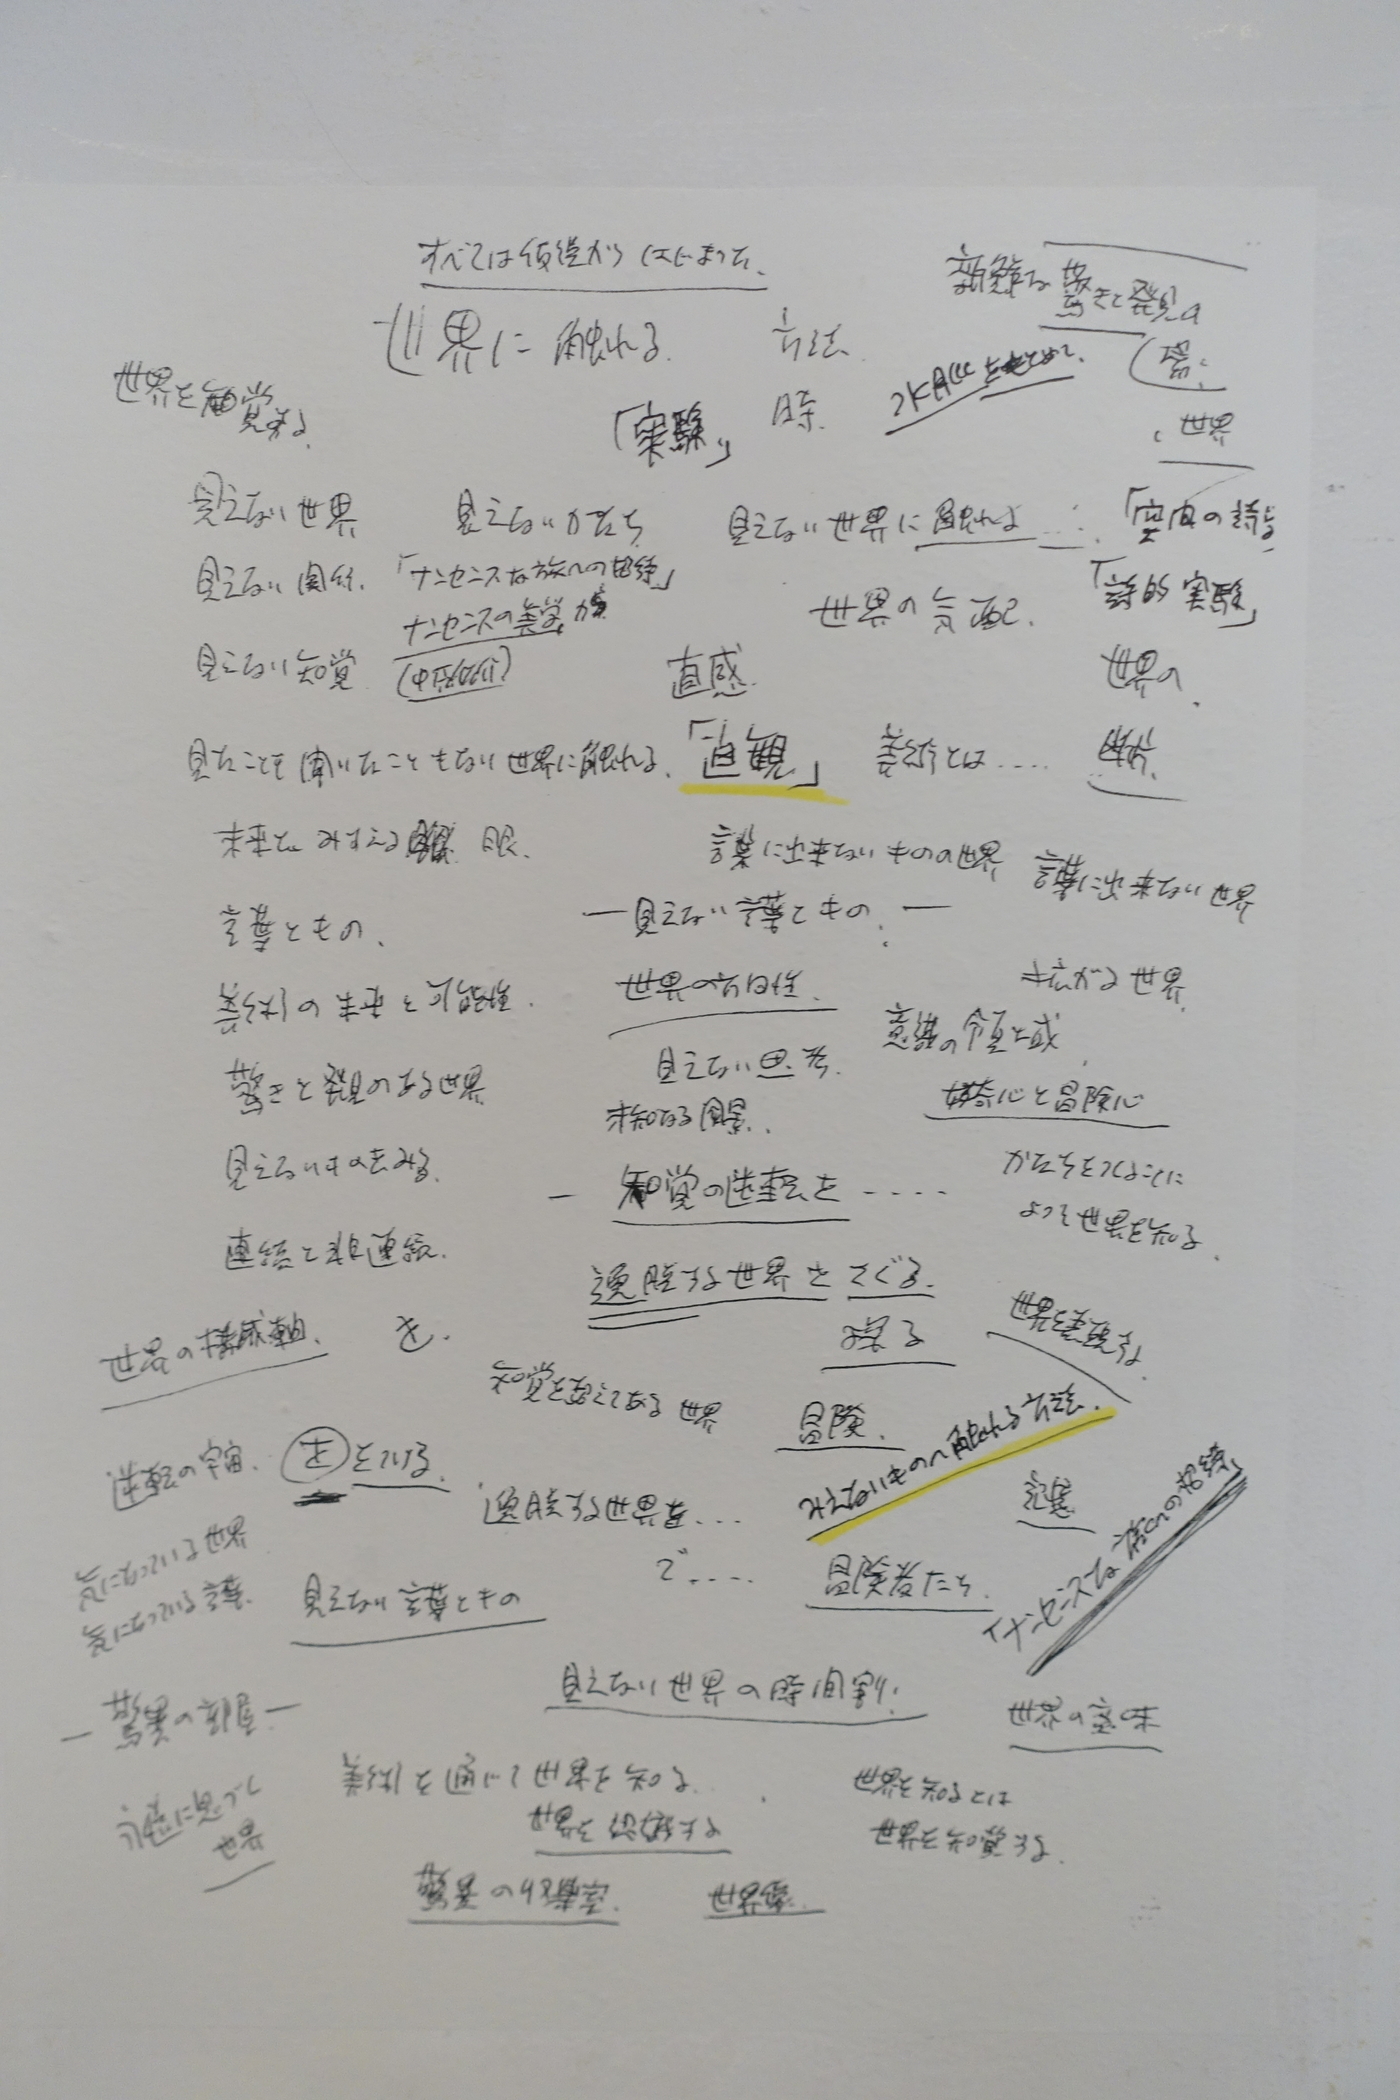 すべては仮説から はじまった、
新鮮な驚きと発見の
世界に触れる 方法
(場;
世界を知覚する
「実験」 時
世界
見えない世界 見えないかたち 見えない世界に触れよ…… 「空間の詩」
見えない関係、「ナンセンスな旅への招待」
ナンセンスの美学
世界の気配. 「詩的実験」
見えない知覚 直感. 世界の
見たことも聞いたこともない世界に触れる、「直観」 美術とは……
未来を みすえる 眼.
言葉に出来ないものの世界 言葉に出来ない世界
言葉ともの、 —見えない言葉ともの、—
美術の未来と可能性. 世界の方向性. 広がる世界
意識の領域
驚きと発見のある世界 見えない思考. 好奇心と冒険心
未知なる風景..
見えないものをみる. — 知覚の逆転を…… かたちをつくることに
よって世界を知る.
連続と非連続.
透明な世界をさぐる.
世界の構成軸. を. 探る
知覚を超えてある世界 冒険.
みえないものへ触れる方法.
逆転の宇宙.
透明な世界を…… 記憶
気になっている世界 で…… 冒険者たち.
気になっている言葉. 見えない言葉ともの
「ナンセンスな旅への招待」
見えない世界の時間割.
—驚異の部屋— 世界の意味
美術を通じて世界を知る. 世界を知るとは
世界を知覚する.
世界
驚異の収集室. 世界像.